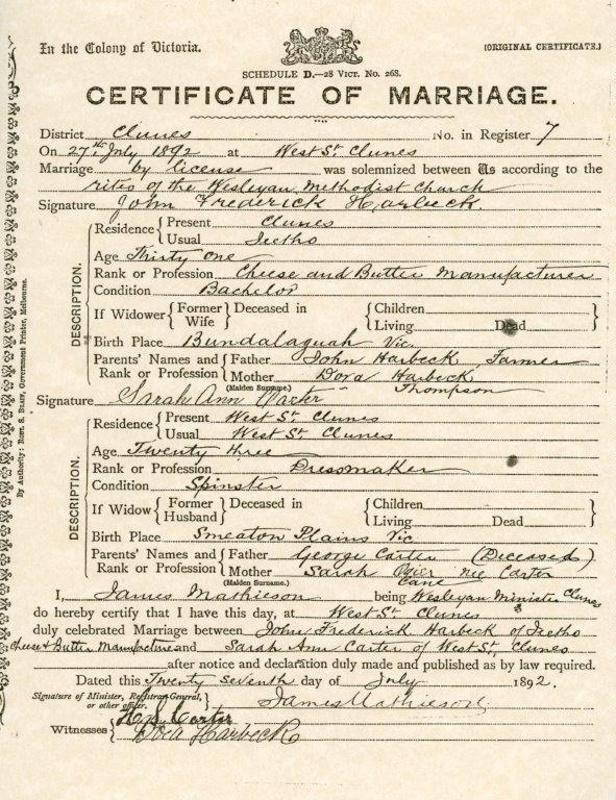 In the Colony of Victoria.
(ORIGINAL CERTIFICATE.)
SCHEDULE D.—28 VICT. No. 268.
CERTIFICATE OF MARRIAGE.
District Clunes No. in Register 7
On 27th July 1892 at West St. Clunes
Marriage by license was solemnized between Us according to the
rites of the Wesleyan Methodist Church
Signature John Frederick Harbeck.
DESCRIPTION.
Residence Present Clunes
Usual Ieetho
Age Thirty one
Rank or Profession Cheese and Butter Manufacturer
Condition Bachelor
If Widower Former Wife Deceased in Children Living Dead
Birth Place Bundalaguah Vic.
Parents' Names and Father John Harbeck, Farmer
Rank or Profession Mother Dora Harbeck
(Maiden Surname.) Thompson
Signature Sarah Ann Carter
DESCRIPTION.
Residence Present West St. Clunes
Usual West St. Clunes
Age Twenty three
Rank or Profession Dressmaker
Condition Spinster
If Widow Former Husband Deceased in Children Living Dead
Birth Place Smeaton Plains Vic
Parents' Names and Father George Carter (Deceased)
Rank or Profession Mother Sarah nee Carter
(Maiden Surname.) Cane
I, James Mathieson being Wesleyan Minister Clunes
do hereby certify that I have this day, at West St. Clunes
duly celebrated Marriage between John Frederick Harbeck of Ieetho
Cheese & Butter Manufacture and Sarah Ann Carter of West St. Clunes
after notice and declaration duly made and published as by law required.
Dated this Twenty Seventh day of July 1892.
Signature of Minister, Registrar-General,
or other officer. James Mathieson
Witnesses Carter
Dora Harbeck
By Authority: ROBT. S. BRAIN, Government Printer, Melbourne.